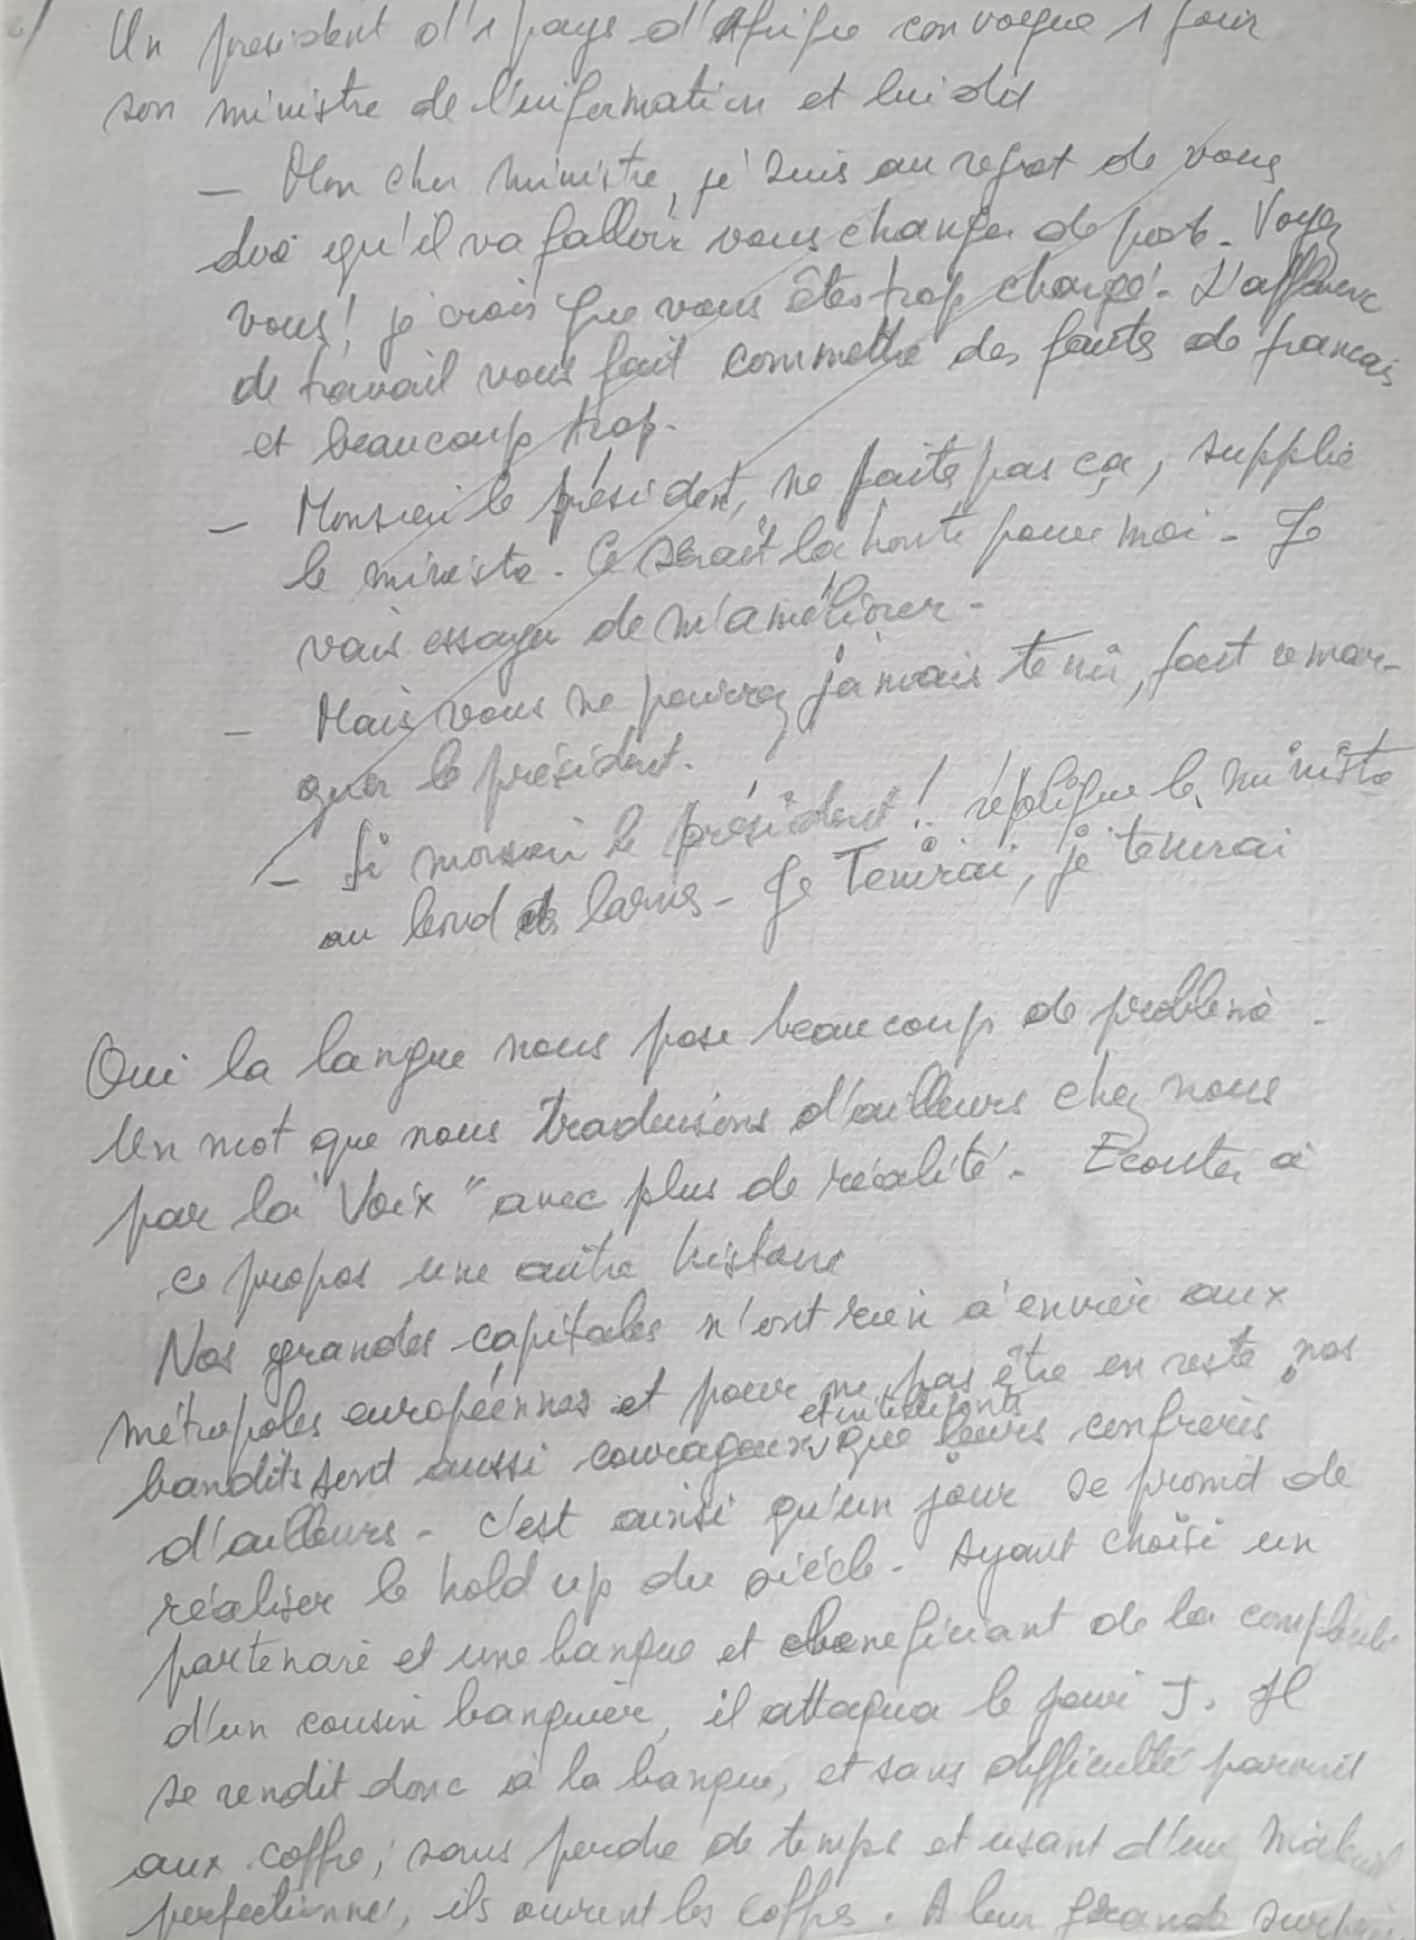 Un president d'1 pays d'Afrique convoque 1 jour
son ministre de l'information et lui dit
— Mon cher ministre, je suis au regret de vous
dire qu'il va falloir vous changer de poste. Voyez
vous! je crois que vous êtes trop chargé. L'affluence
de travail vous fait commettre des fautes de francais
et beaucoup trop.
— Monsieur le président, ne faite pas ça, supplie
le ministre. Ce serait la honte pour moi. Je
vais essayer de m'améliorer.
— Mais vous ne pourrez jamais tenir, fait remar-
quer le président.
— Si monsieur le président! réplique le ministre
au bord des larmes. Je Tenirai, je tenirai
Oui la langue nous pose beaucoup de problème.
Un mot que nous traduisons d'ailleurs chez nous
par la "Voix" avec plus de réalité. Ecoutez à
ce propos une autre histoire
Nos grandes capitales n'ont rien à envier aux
métropoles européennes et pour ne pas être en reste, nos
bandits sont aussi courageux et intelligents que leurs confreres
d'ailleurs. C'est ainsi qu'un jour se promit de
réaliser le hold up du siècle. Ayant choisi un
partenaire et une banque et beneficiant de la complicité
d'un cousin banquier, il attaqua le jour J. Il
se rendit donc à la banque, et sans difficulté parvint
aux coffre; sans perdre de temps et usant d'un matériel
perfectionné, ils ouvrent les coffres. A leur grande surprise